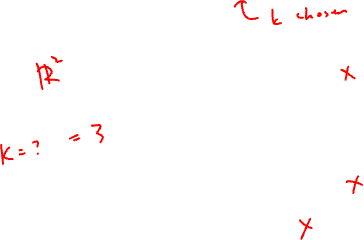 k chosen
ℝ²
K = ? = 3
x
x
x